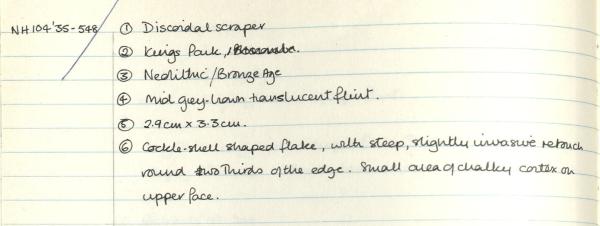 NH104'35-548 ① Discoidal scraper
② Kings Park, Boscombe.
③ Neolithic/Bronze Age
④ Mid grey-brown translucent flint.
⑤ 2.9cm x 3.3cm.
⑥ Cockle-shell shaped flake, with steep, slightly invasive retouch
round two thirds of the edge. Small area of chalky cortex on
upper face.